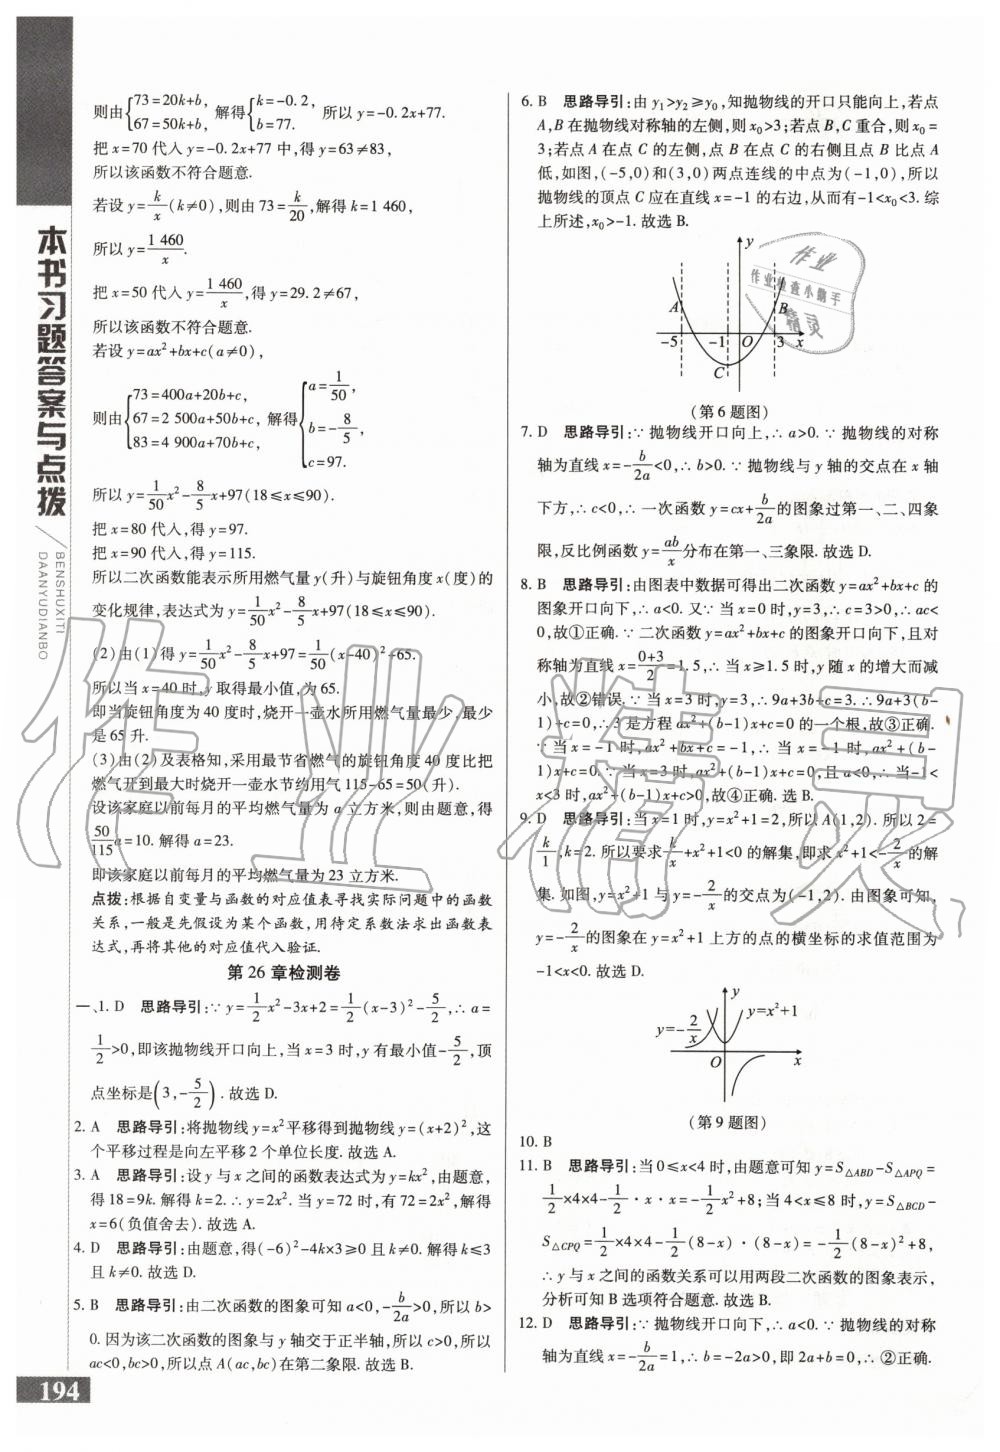 本书习题答案与点拨
BENSHUXITI
DAANYUDIANBO
则由{73=20k+b, 67=50k+b, 解得{k=-0.2, b=77. 所以 y=-0.2x+77.
把 x=70 代入 y=-0.2x+77 中,得 y=63≠83,
所以该函数不符合题意.
若设 y=k/x(k≠0),则由 73=k/20,解得 k=1 460,
所以 y=1 460/x.
把 x=50 代入 y=1 460/x,得 y=29.2≠67,
所以该函数不符合题意.
若设 y=ax²+bx+c(a≠0),
则由{73=400a+20b+c, 67=2 500a+50b+c, 83=4 900a+70b+c, 解得{a=1/50, b=-8/5, c=97.
所以 y=1/50x²-8/5x+97(18≤x≤90).
把 x=80 代入,得 y=97.
把 x=90 代入,得 y=115.
所以二次函数能表示所用燃气量 y(升)与旋钮角度 x(度)的
变化规律,表达式为 y=1/50x²-8/5x+97(18≤x≤90).
(2)由(1)得 y=1/50x²-8/5x+97=1/50(x-40)²+65.
所以当 x=40 时,y 取得最小值,为 65.
即当旋钮角度为 40 度时,烧开一壶水所用燃气量最少.最少
是 65 升.
(3)由(2)及表格知,采用最节省燃气的旋钮角度 40 度比把
燃气开到最大时烧开一壶水节约用气 115-65=50(升).
设该家庭以前每月的平均燃气量为 a 立方米,则由题意,得
50/115a=10. 解得 a=23.
即该家庭以前每月的平均燃气量为 23 立方米.
点拨:根据自变量与函数的对应值表寻找实际问题中的函数
关系,一般是先假设为某个函数,用待定系数法求出函数表
达式,再将其他的对应值代入验证.
第 26 章检测卷
一、1. D 思路导引:∵ y=1/2x²-3x+2=1/2(x-3)²-5/2,∴ a=
1/2>0,即该抛物线开口向上,当 x=3 时,y 有最小值-5/2,顶
点坐标是(3,-5/2). 故选 D.
2. A 思路导引:将抛物线 y=x²平移得到抛物线 y=(x+2)²,这
个平移过程是向左平移 2 个单位长度. 故选 A.
3. A 思路导引:设 y 与 x 之间的函数表达式为 y=kx²,由题意,
得 18=9k. 解得 k=2. ∴ y=2x². 当 y=72 时,有 72=2x²,解得
x=6(负值舍去). 故选 A.
4. D 思路导引:由题意,得(-6)²-4k×3≥0 且 k≠0. 解得 k≤3
且 k≠0. 故选 D.
5. B 思路导引:由二次函数的图象可知 a<0,-b/2a>0,所以 b>
0. 因为该二次函数的图象与 y 轴交于正半轴,所以 c>0,所以
ac<0,bc>0,所以点 A(ac,bc)在第二象限. 故选 B.
194
6. B 思路导引:由 y₁>y₂≥y₀,知抛物线的开口只能向上,若点
A,B 在抛物线对称轴的左侧,则 x₀>3;若点 B,C 重合,则 x₀=
3;若点 A 在点 C 的左侧,点 B 在点 C 的右侧且点 B 比点 A
低,如图,(-5,0)和(3,0)两点连线的中点为(-1,0),所以
抛物线的顶点 C 应在直线 x=-1 的右边,从而有-1<x₀<3. 综
上所述,x₀>-1. 故选 B.
y
A
B
-5
-1
O
3
x
C
作业
作业检查小助手
(第 6 题图)
7. D 思路导引:∵ 抛物线开口向上,∴ a>0. ∵ 抛物线的对称
轴为直线 x=-b/2a<0,∴ b>0. ∵ 抛物线与 y 轴的交点在 x 轴
下方,∴ c<0,∴ 一次函数 y=cx+b/2a的图象过第一、二、四象
限,反比例函数 y=ab/x分布在第一、三象限. 故选 D.
8. B 思路导引:由图表中数据可得出二次函数 y=ax²+bx+c 的
图象开口向下,∴ a<0. 又∵ 当 x=0 时,y=3,∴ c=3>0,∴ ac<
0,故①正确. ∵ 二次函数 y=ax²+bx+c 的图象开口向下,且对
称轴为直线 x=0+3/2=1.5,∴ 当 x≥1.5 时,y 随 x 的增大而减
小,故②错误. ∵ 当 x=3 时,y=3,∴ 9a+3b+c=3. ∴ 9a+3(b-
1)+c=0,∴ 3 是方程 ax²+(b-1)x+c=0 的一个根,故③正确.
∵ 当 x=-1 时,ax²+bx+c=-1,∴ 当 x=-1 时,ax²+(b-
1)x+c=0. ∵ 当 x=3 时,ax²+(b-1)x+c=0,且 a<0,∴ 当-1<
x<3 时,ax²+(b-1)x+c>0,故④正确. 选 B.
9. D 思路导引:当 x=1 时,y=x²+1=2,所以 A(1,2). 所以 2=
k/1,k=2. 所以要求k/x+x²+1<0 的解集,即求 x²+1<-2/x的解
集. 如图,y=x²+1 与 y=-2/x的交点为(-1,2). 由图象可知,
y=-2/x的图象在 y=x²+1 上方的点的横坐标的求值范围为
-1<x<0. 故选 D.
y
y=x²+1
y=-2/x
O
x
(第 9 题图)
10. B
11. B 思路导引:当 0≤x<4 时,由题意可知 y=S△ABD-S△APQ=
1/2×4×4-1/2·x·x=-1/2x²+8;当 4<x≤8 时,y=S△BCD-
S△CPQ=1/2×4×4-1/2(8-x)·(8-x)=-1/2(8-x)²+8,
∴ y 与 x 之间的函数关系可以用两段二次函数的图象表示,
分析可知 B 选项符合题意. 故选 B.
12. D 思路导引:∵ 抛物线开口向下,∴ a<0. ∵ 抛物线的对称
轴为直线 x=-b/2a=1,∴ b=-2a>0,即 2a+b=0,∴ ②正确.
作业精灵